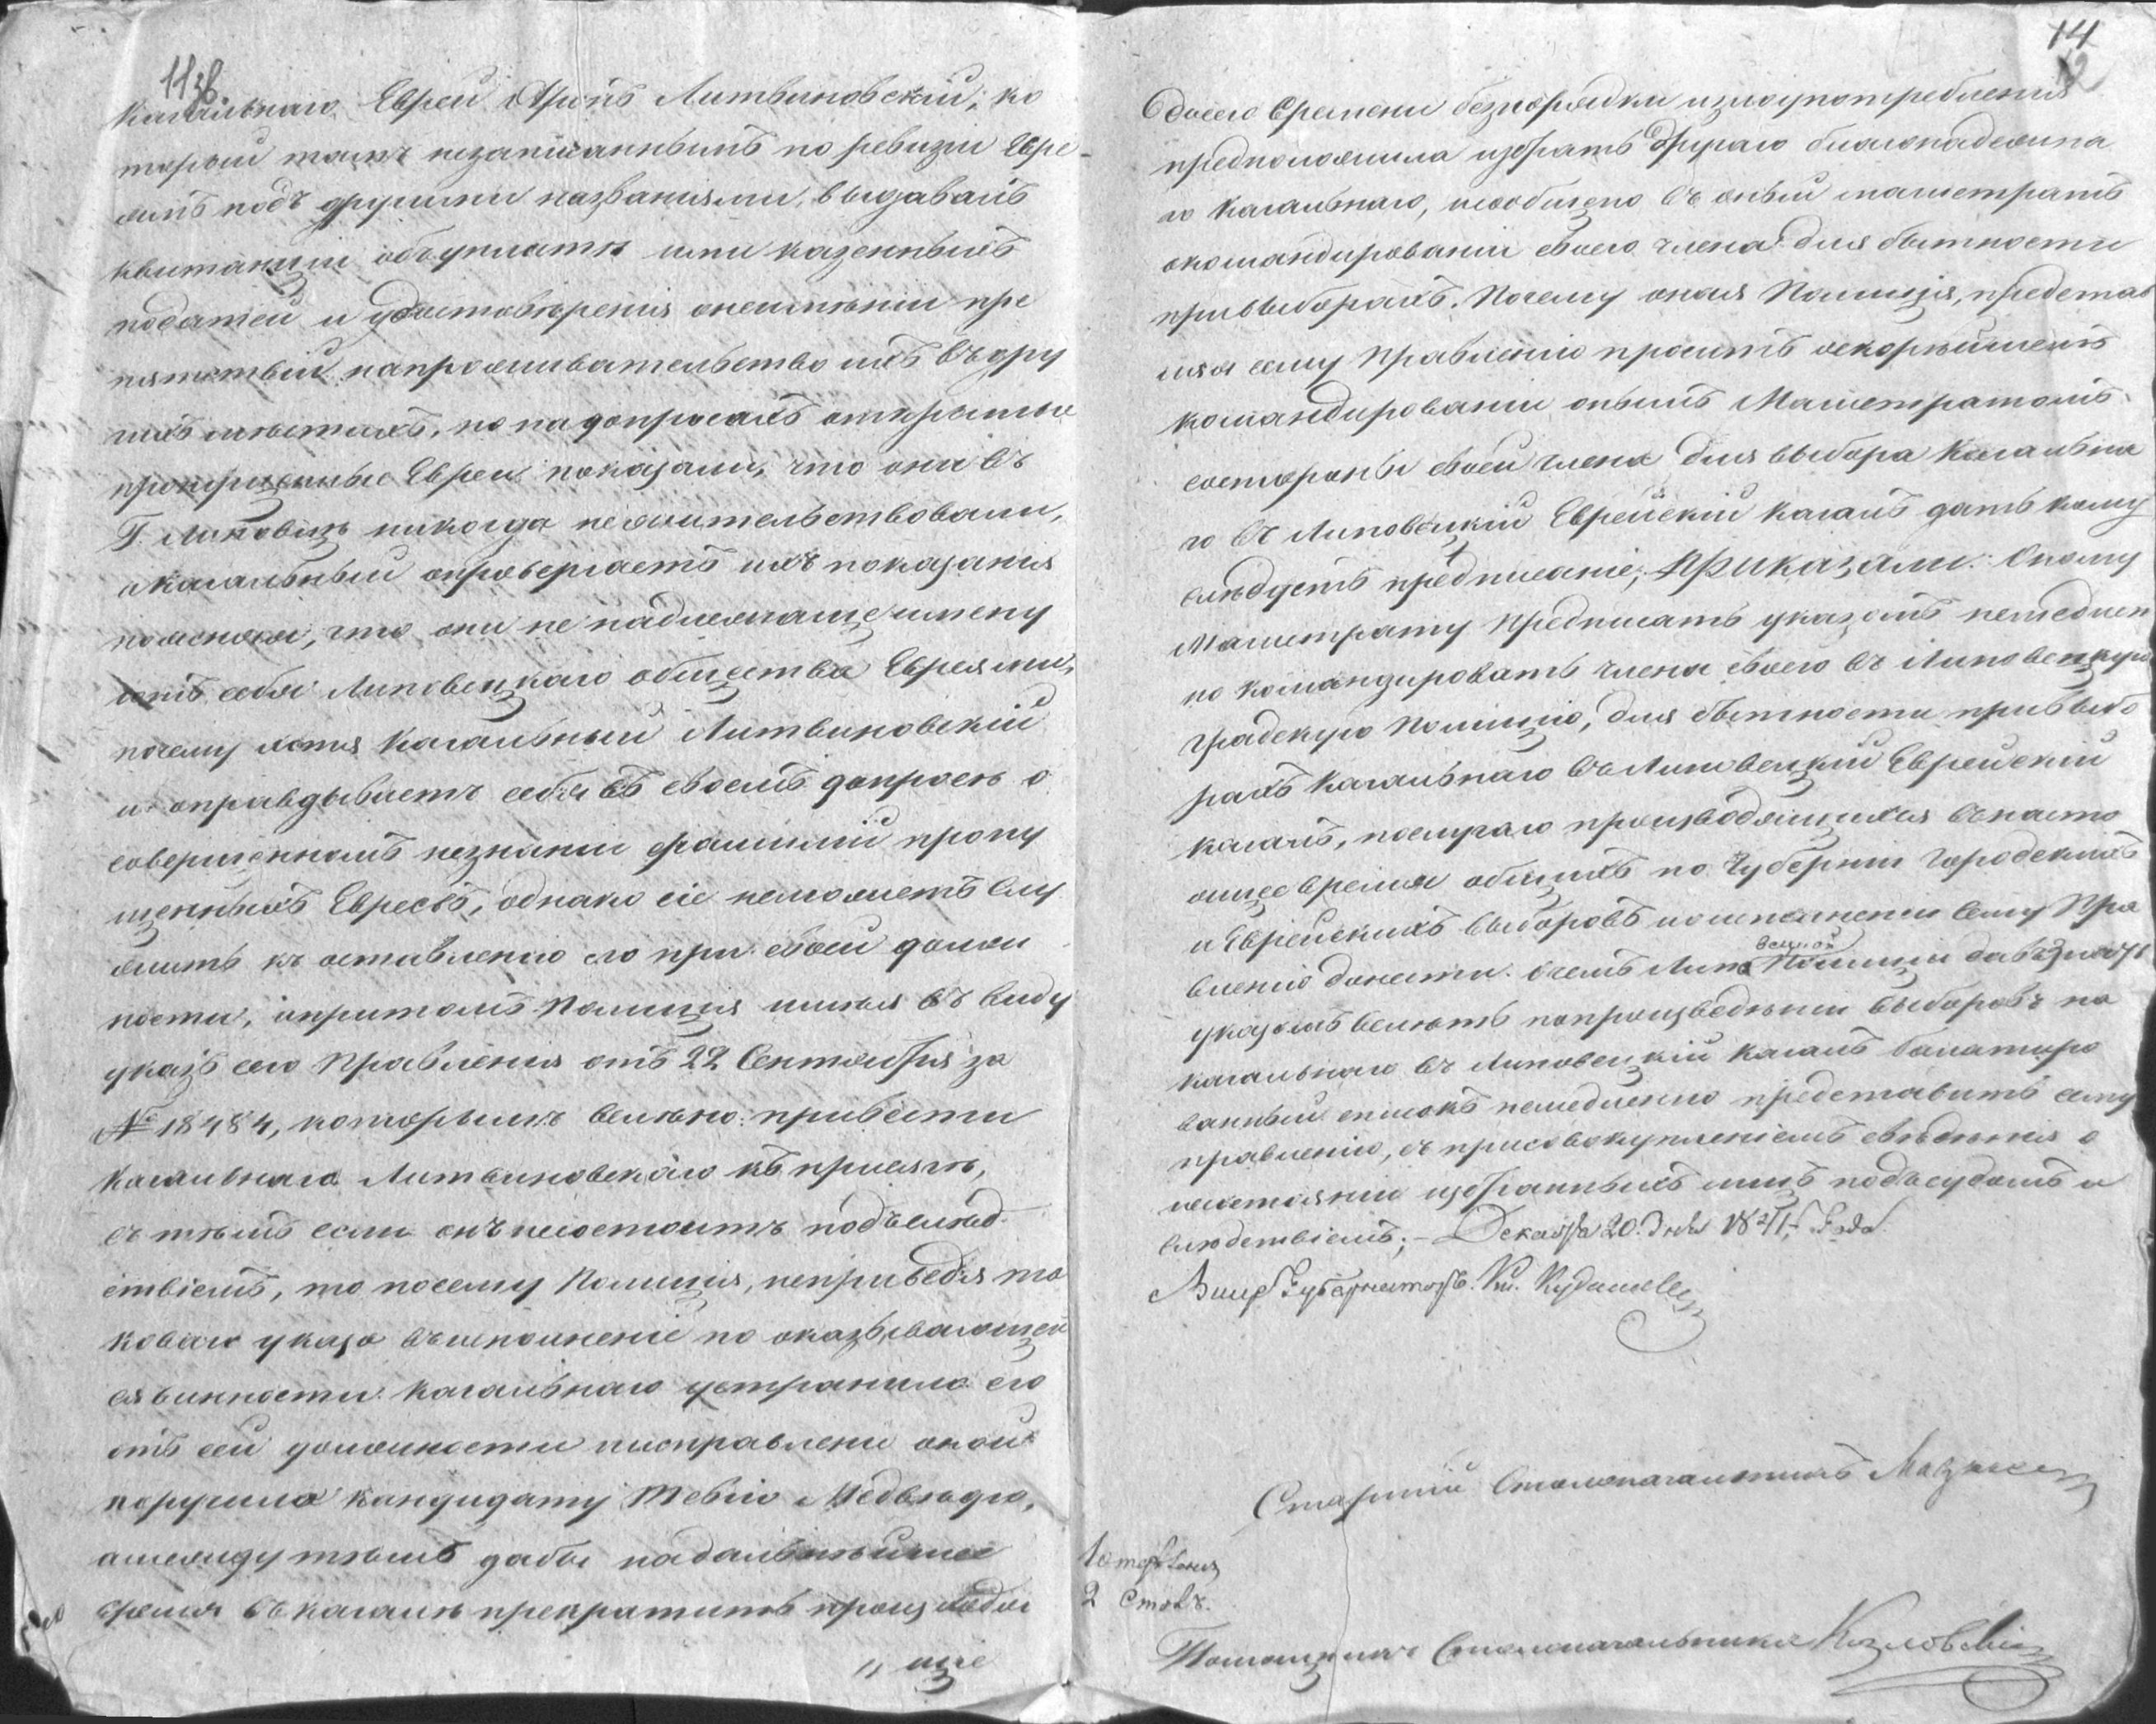 11 зв.
Кагальнаго Еврей Аронъ Литвиновскій, ко
торый такъ незаписаннымъ по ревизіи Евре
ямъ подъ другими названіями, выдавалъ
квитанціи обуплатѣ ими казенныхъ
податей и удостовѣренія онеимѣніи пре
пятствій напроживательство ихъ въ дру
гихъ мѣстахъ, но на допросахъ открытые
пропущенные Евреи показали, что они въ
Г. Липовцѣ никогда нежительствовали,
Кагальный опровергаетъ ихъ показанія
поясняя, что они не надлежаще имену
ютъ себя Липовецкаго общества Евреями,
почему хотя Кагальный Литвиновскій
и оправдываетъ себя въ своемъ допросѣ о
совершенномъ незнаніи фамилій пропу
щенныхъ Евреевъ, однако сіе неможетъ слу
жить къ оставленію его при своей долж
ности, а притомъ Полиція имѣя въ виду
указъ сего Правленія отъ 22 Сентября за
№ 18484, которымъ велѣно: привести
Кагальнаго Литвиновскаго къ присягѣ,
съ тѣмъ если онъ несостоитъ подъ слѣд
ствіемъ, то посему Полиція, неприведя та
коваго указа въ исполненіе по оказывающей
ся винности Кагальнаго устранила его
отъ сей должности и исправленіе оной
поручила кандидату Тевію Медвѣдю,
а между тѣмъ дабы надальнѣйшее
время въ кагалѣ прекратить производи
„ щіе
14
12
Одоего времени безпорядки и злоупотребленія
предположила избрать другаго благонадежна
го Кагальнаго, и сообщено въ оный магистратъ
окомандированіи своего члена для бытности
при выборахъ. Почему оная Полиція, представ
ляя сему Правленію проситъ оскорѣйшемъ
командированіи онымъ Магистратомъ
состороны своей члена для выбора Кагальна
го въ Липовецкій Еврейскій кагалъ дать кому
слѣдуетъ предписаніе; Приказали: Оному
Магистрату предписать указомъ немедлен
но командировать члена своего въ Липовецкую
градскую Полицію, для бытности при выбо
рахъ Кагальнаго въ Липовецкій Еврейскій
кагалъ, послучаю производящихся въ насто
ящее время общихъ по Губерніи Городскихъ
и Еврейскихъ выборовъ и о исполненіи сему Пра
вленію донести. О чемъ Липовецкой Полиціи дать знать
указомъ велѣть по произведеніи выборовъ на
Кагальнаго въ Липовецкій кагалъ балатиро
ванный списокъ немедленно представить сему
правленію, съ присовокупленіемъ свѣденія о
несостояніи избранныхъ лицъ подъ судомъ и
слѣдствіемъ; — Декабря 20. дня 1841 Года
Вице Губернаторъ. Кн. Кудашевъ
Старшій Столоначальникъ
1 отдѣленія
2 Столъ.
Помощникъ Столоначальника Козловскій